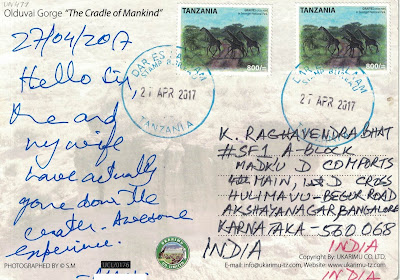 UN 477
Olduvai Gorge "The Cradle of Mankind"
27/04/2017
Hello
me and
my wife
have actually
gone down the
crater. Awesome
experience.
PHOTOGRAPHED BY © S.M
UCL/0176
TANZANIA
800/=
TANZANIA
800/=
DAR ES SALAAM
STAMP BUREAU
21 APR 2017
TANZANIA
21 APR 2017
TANZANIA
K. RAGHAVENDRA BHAT
#SF1 A-BLOCK
MADKU D COMFORTS
4th MAIN, D CROSS
HULIMAVU-BEGUR ROAD
AKSHAYANAGAR BANGALORE
KARNATAKA-560068
INDIA
INDIA
INDIA
UKARIMU
Copyright: By UKARIMU CO.
E-mail: info@ukarimu-tz.com, Website: www.ukarimu-tz.com